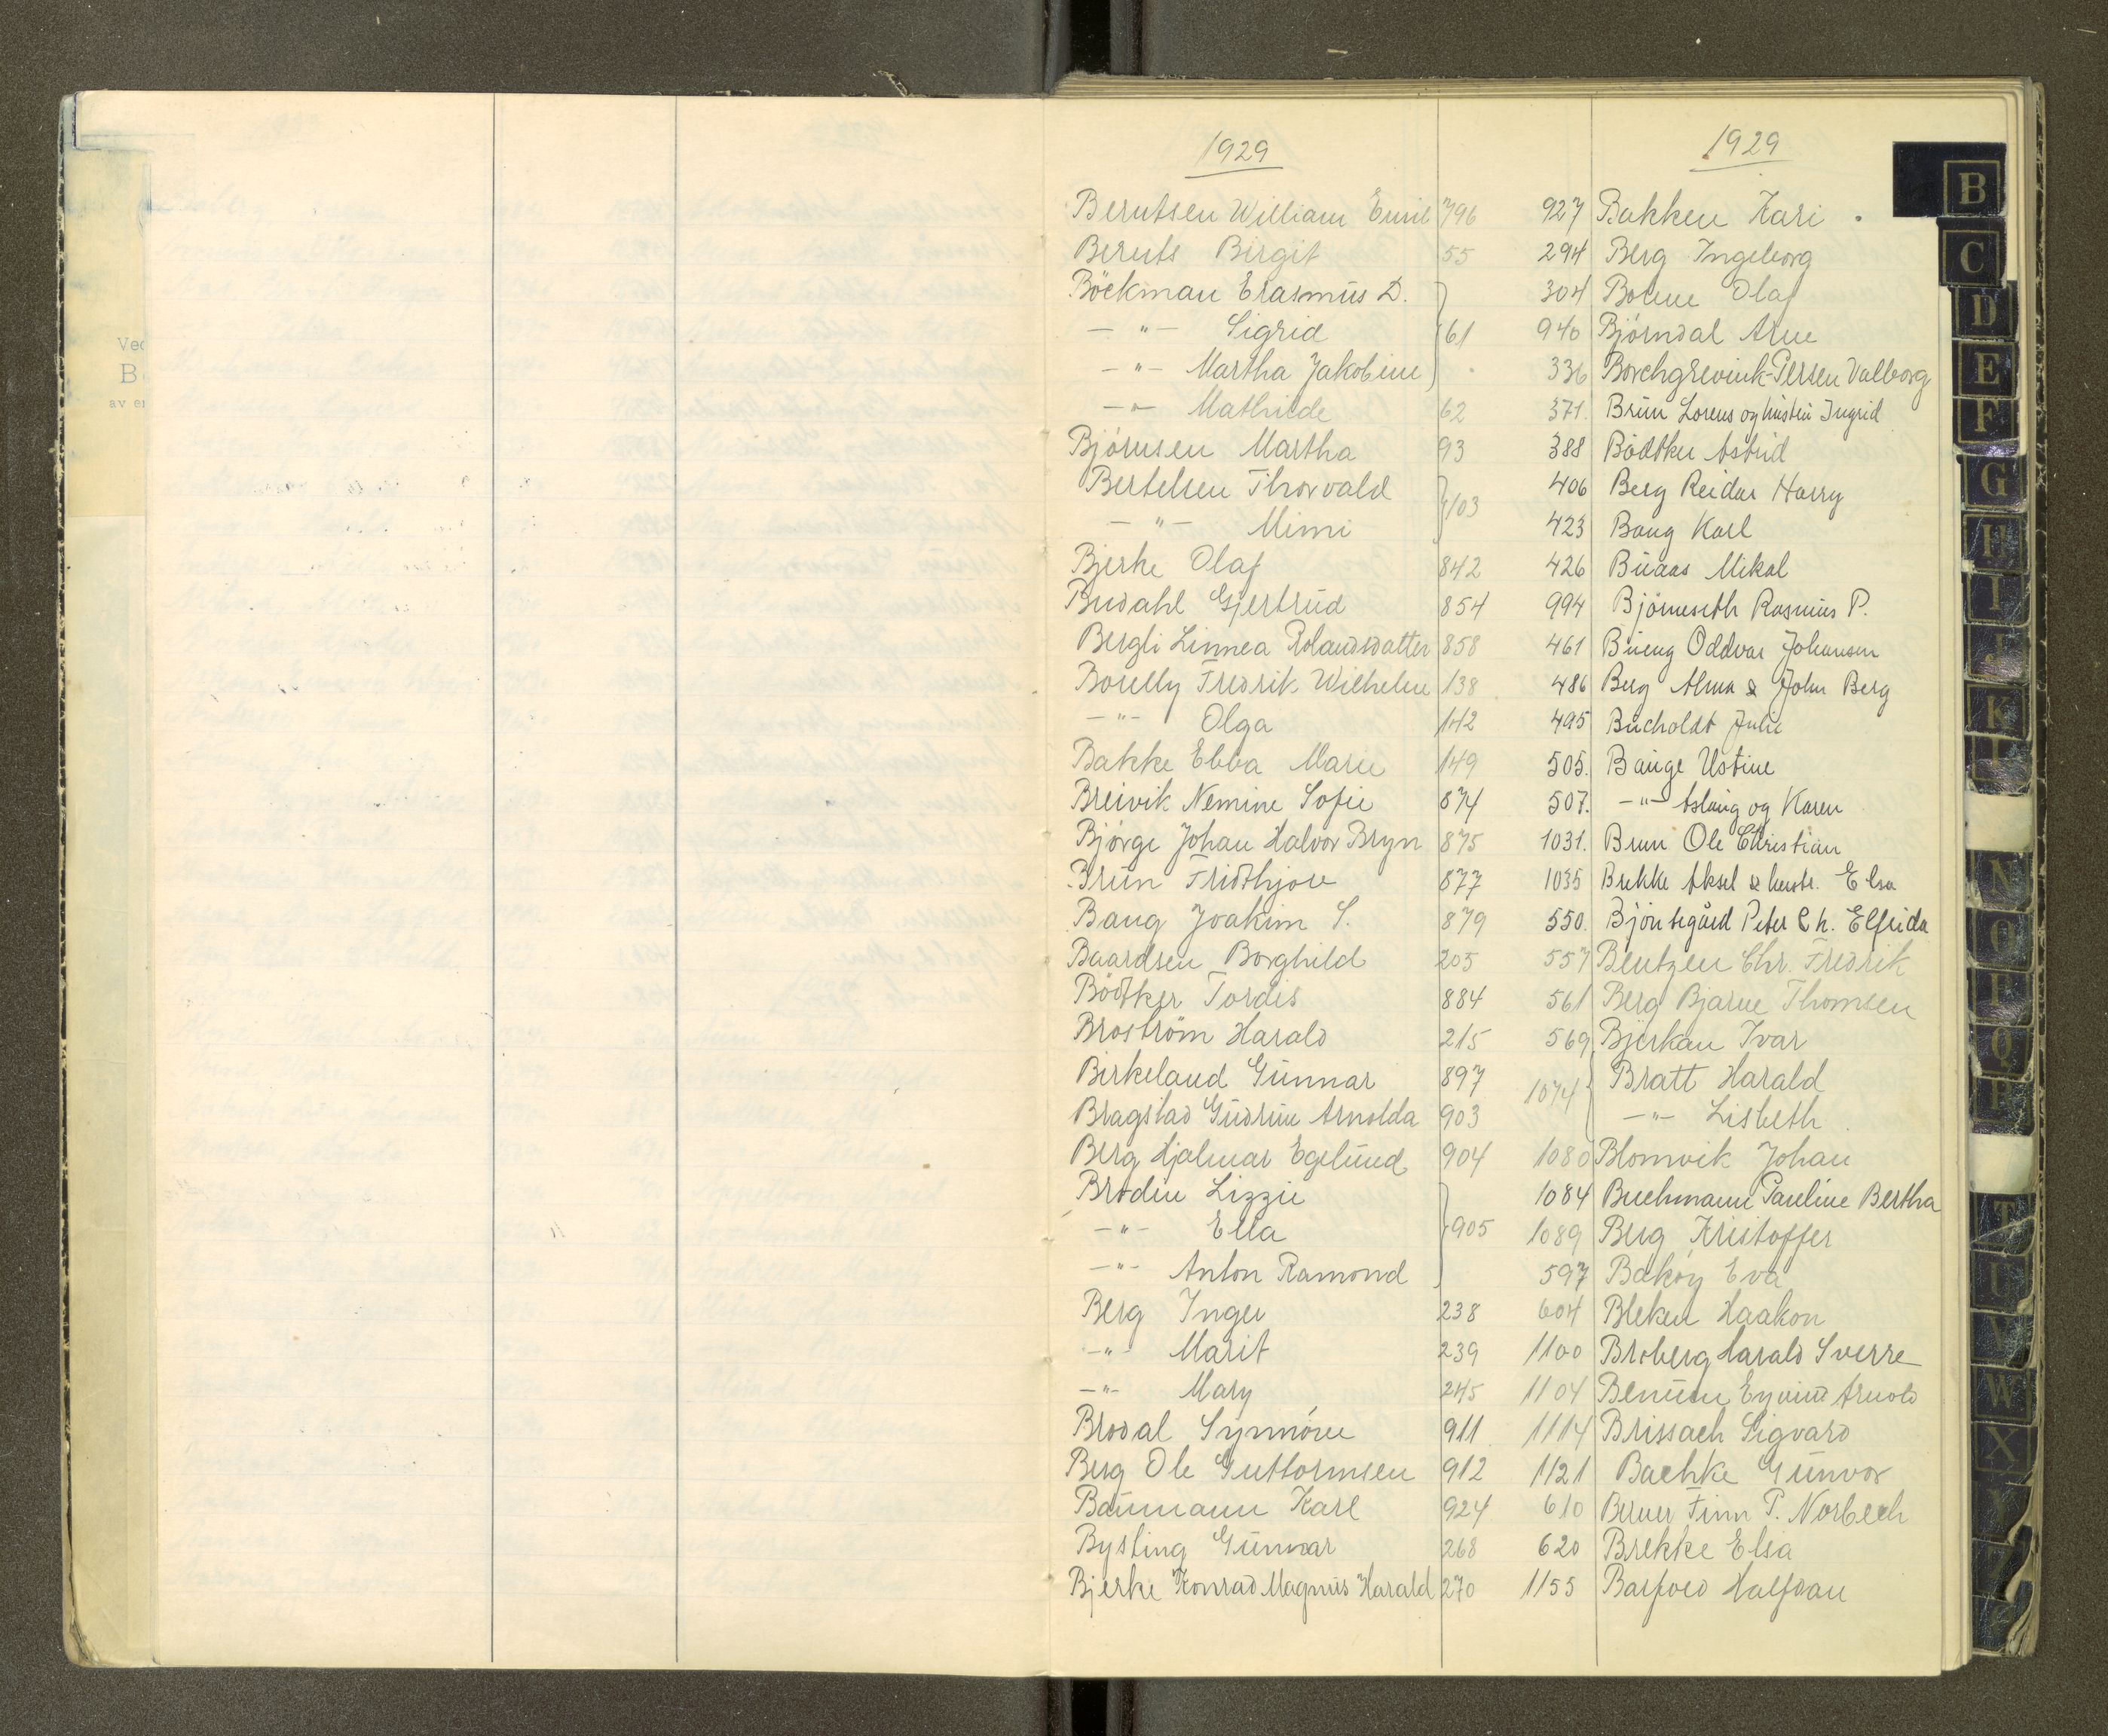 1929
Berntsen William Emil 796
Bernts Birgit 55
Böckman Erasmus D.
— " — Sigrid 61
— " — Martha Jakobine
— " — Mathilde 62
Björnsen Martha 93
Bertelsen Thorvald
— " — Mimi 103
Bjerke Olaf 842
Budahl Gjertrud 854
Bergli Linnea Rolandsdatter 858
Borelly Fredrik Wilhelm 138
— " — Olga 142
Bakke Ebba Marie 149
Breivik Nemine Sofie 874
Björge Johan Halvor Bryn 875
Brun Fridthjov 877
Bang Joakim S. 879
Baardsen Borghild 205
Bödtker Tordis 884
Broström Harald 215
Birkeland Gunnar 897
Bragstad Gudrun Arnolda 903
Berg Hjalmar Egelund 904
Brodin Lizzie
— " — Ella 905
— " — Anton Ramond
Berg Inger 238
— " — Marit 239
— " — Mary 245
Brodal Synnöve 911
Berg Ole Guttormsen 912
Baumann Karl 924
Bysting Gunnar 268
Bjerke Konrad Magnus Harald 270
1929
927 Bakken Kari .
294 Berg Ingeborg
304 Bonne Olaf
940 Björndal Arne
336 Borchgrevink-Persen Valborg
371. Brun Lorens og hustru Ingrid
388 Bödtker Astrid
406 Berg Reidar Harry
423 Bang Karl
426 Buaas Mikal
994 Björneseth Rasmus P.
461 Bueng Oddvar Johansen
486 Berg Alma & John Berg
495 Bucholdt Julie
505. Bauge Ustine
507. — " — Aslaug og Karen
1031. Brun Ole Christian
1035 Brekke Aksel & hustr. Elsa
550. Björntegård Peter Ch. Elfrida
557 Bentzen Chr. Fredrik
561 Berg Bjarne Thomsen
569 Bjerkan Ivar
1074 Bratt Harald
— " — Lisbeth
1080 Blomvik Johan
1084 Buchmann Pauline Bertha
1089 Berg Kristoffer
597 Baköy Eva
604 Bleken Haakon
1100 Broberg Harald Sverre
1104 Benum Eyvind Arnold
1114 Brissach Sigvard
1121 Bachke Gunvor
610 Berner Finn P. Norbech
620 Brekke Elsa
1155 Barfoed Halfdan
Ved
B
av e
B
C
D
E
F
G
H
I
J
K
L
N
O
P
Q
R
T
U
V
W
X
Y